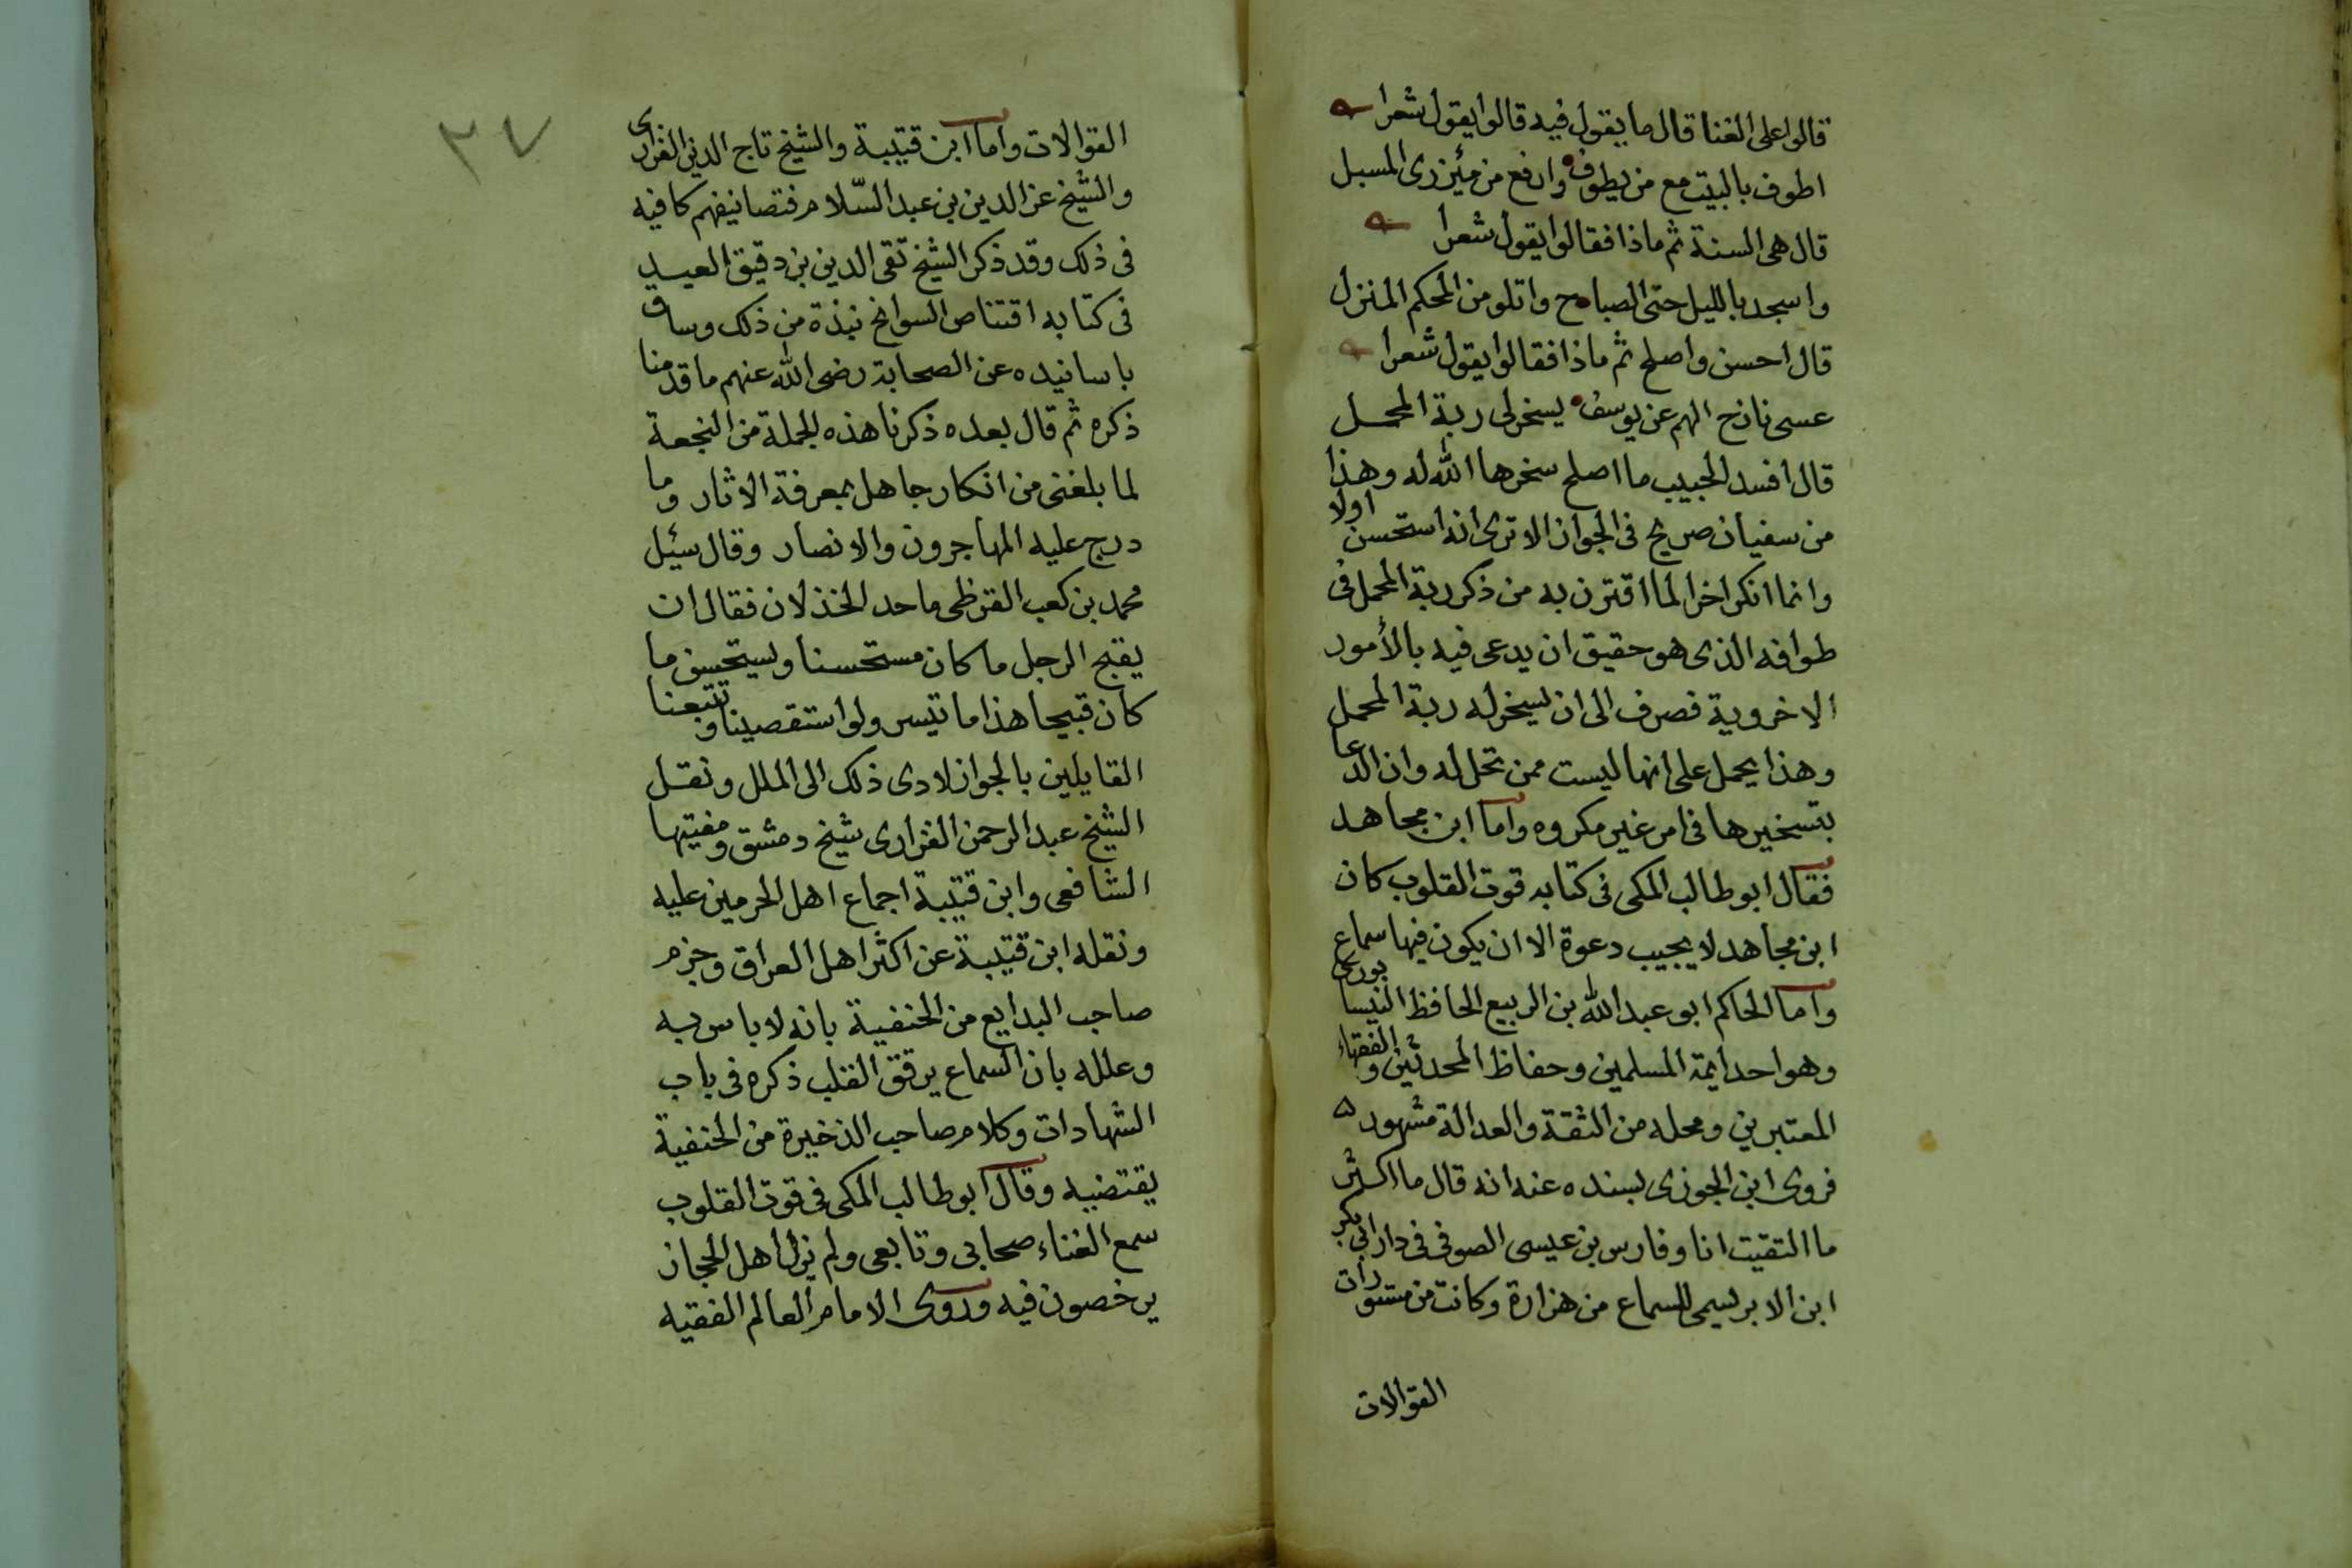 قالوا على الغنا قال ما يقول فيه قالوا يقول شعرا
اطوف بالبيت مع من يطوف وارفع من مئزرى المسبل
قال هى السنة ثم ماذا فقالوا يقول شعرا
واسجد بالليل حتى الصباح واتلو من المحكم المنزل
قال احسن واصلح ثم ماذا فقالوا يقول شعرا
عسى فارج الهم عن يوسف يسخر لى ربة المحمل
قال افسد الخبيب ما اصلح سخرها الله له وهذا
من سفيان صريح فى الجواز الا ترى انه استحسن اولا
وانما انكر اخرا لما اقترن به من ذكر ربة المحمل فى
طوافه الذى هو حقيق ان يدعى فيه بالأمور
الاخروية فصرف الى ان يسخر له ربة المحمل
وهذا يحمل على انها ليست ممن تحل له وان الدعا
بتسخيرها فى امر غير مكروه واما ابن مجاهد
فقال ابو طالب المكى فى كتابه قوت القلوب كان
ابن مجاهد لا يجيب دعوة الا ان يكون فيها سماع
واما الحاكم ابو عبد الله بن الربيع الحافظ النيسابورى
وهو احد ايمة المسلمين وحفاظ المحدثين والفقهاء
المعتبرين ومحله من الثقة والعدالة مشهور
فروى ابن الجوزى بسنده عنه انه قال ما اكثر
ما التقيت انا وفارس بن عيسى الصوفى فى دار ابى بكر
ابن الابريسمى للسماع من هزارة وكانت من مستورات
القوالات
٣٧
القوالات واما ابن قتيبة والشيخ تاج الدين الفزارى
والشيخ عز الدين بن عبد السّلام فتصانيفهم كافيه
فى ذلك وقد ذكر الشيخ تقى الدين بن دقيق العيد
فى كتابه اقتناص السوانح نبذة من ذلك وساق
باسانيده عن الصحابة رضى الله عنهم ما قدمنا
ذكره ثم قال بعده ذكرنا هذه الجملة من النجعة
لما بلغنى من انكار جاهل بمعرفة الاثار وما
درج عليه المهاجرون والانصار وقال سئيل
محمد بن كعب القرظى ما حد الخذلان فقال ان
يقبح الرجل ما كان مستحسنا ويستحسن ما
كان قبيحا هذا ما تيسر ولو استقصينا وتتبعنا
القايلين بالجواز لادى ذلك الى الملل ونقل
الشيخ عبد الرحمن الفزارى شيخ دمشق ومفتيها
الشافعى وابن قتيبة اجماع اهل الحرمين عليه
ونقله ابن قتيبة عن اكثر اهل العراق وجزم
صاحب البدايع من الحنفية بانه لا باس به
وعلله بان السماع يرقق القلب ذكره فى باب
الشهادات وكلام صاحب الذخيرة من الحنفية
يقتضيه وقال ابو طالب المكى فى قوت القلوب
سمع الغناء صحابى وتابعى ولم يزل اهل الحجاز
يرخصون فيه وروى الامام العالم الفقيه